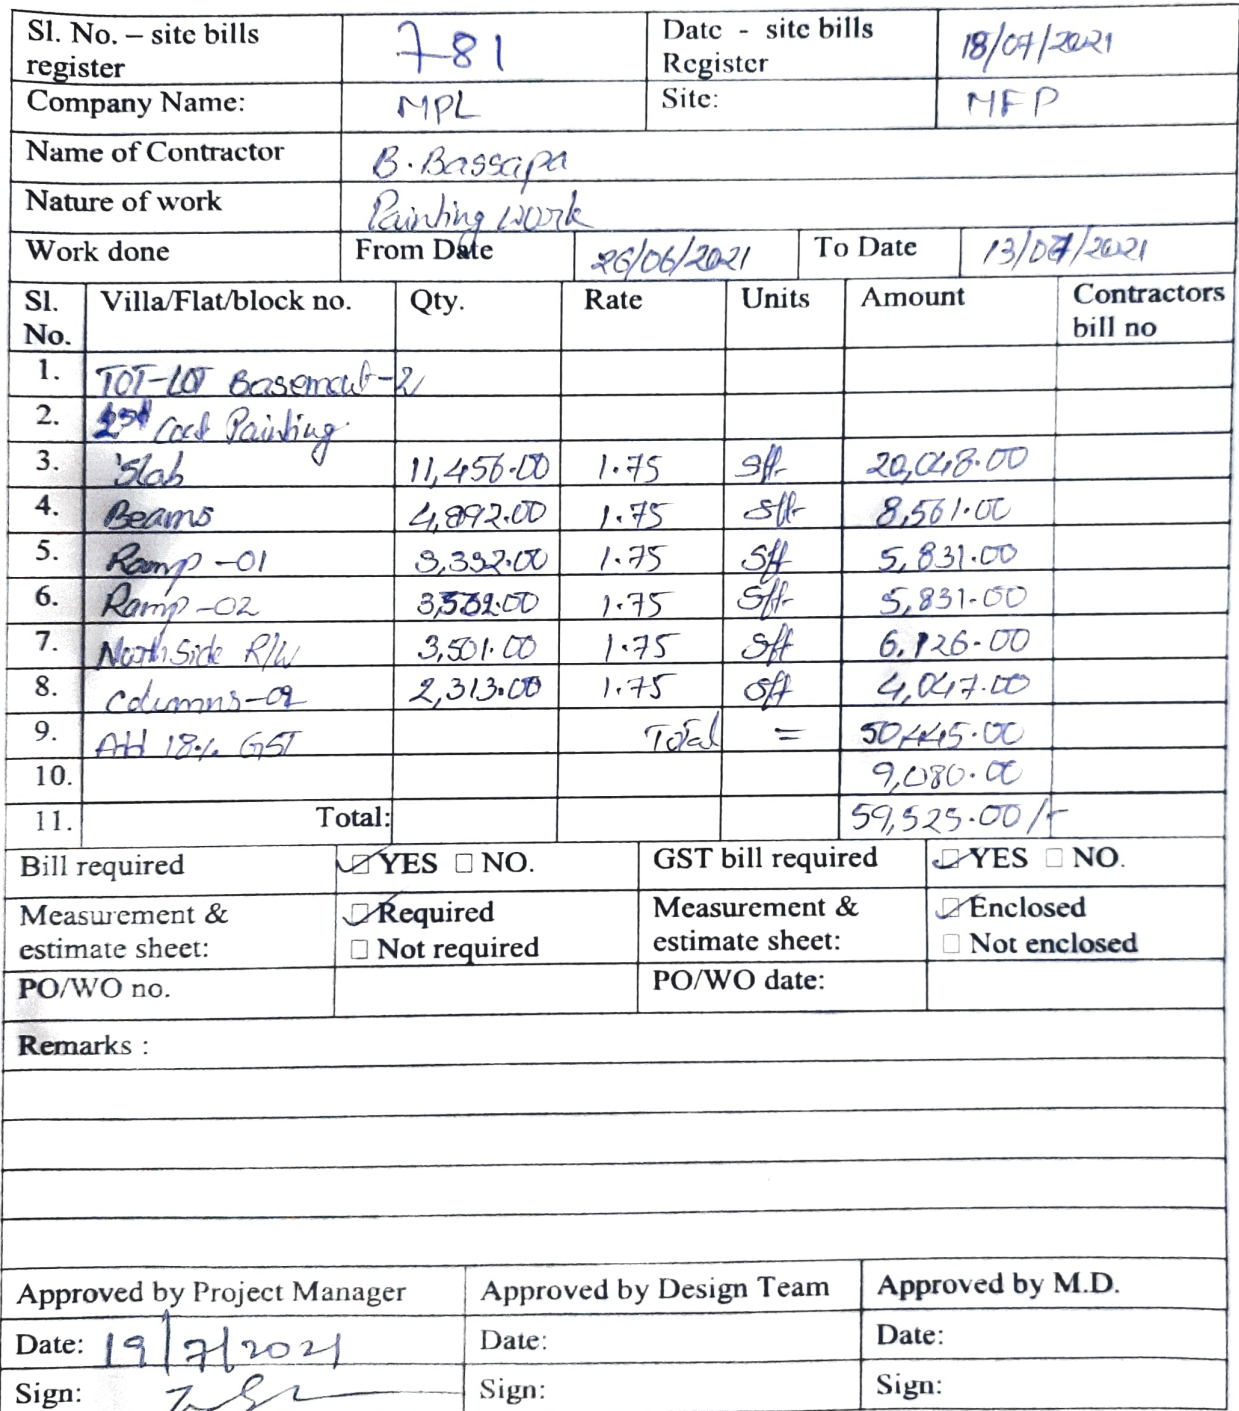 Sl. No. – site bills register 781 Date - site bills Register 18/07/2021
Company Name: MPL Site: MFP
Name of Contractor B. Bassapa
Nature of work Painting work
Work done From Date 26/06/2021 To Date 13/07/2021
Sl. No. Villa/Flat/block no. Qty. Rate Units Amount Contractors bill no
1. TOT-LOT Basement-2
2. Coat Painting.
3. Slab 11,456.00 1.75 Sft 20,048.00
4. Beams 4,892.00 1.75 Sft 8,561.00
5. Ramp-01 3,332.00 1.75 Sft 5,831.00
6. Ramp-02 3,332.00 1.75 Sft 5,831-00
7. North Side R/W 3,501.00 1.75 Sft 6,126-00
8. Columns-02 2,313.00 1.75 Sft 4,047.00
9. Add 18% GST Total = 50,445.00
10. 9,080.00
11. Total: 59,525.00/-
Bill required YES NO. GST bill required YES NO.
Measurement & estimate sheet: Required Not required Measurement & estimate sheet: Enclosed Not enclosed
PO/WO no. PO/WO date:
Remarks :
Approved by Project Manager Approved by Design Team Approved by M.D.
Date: 19/7/2021 Date: Date:
Sign: Sign: Sign: